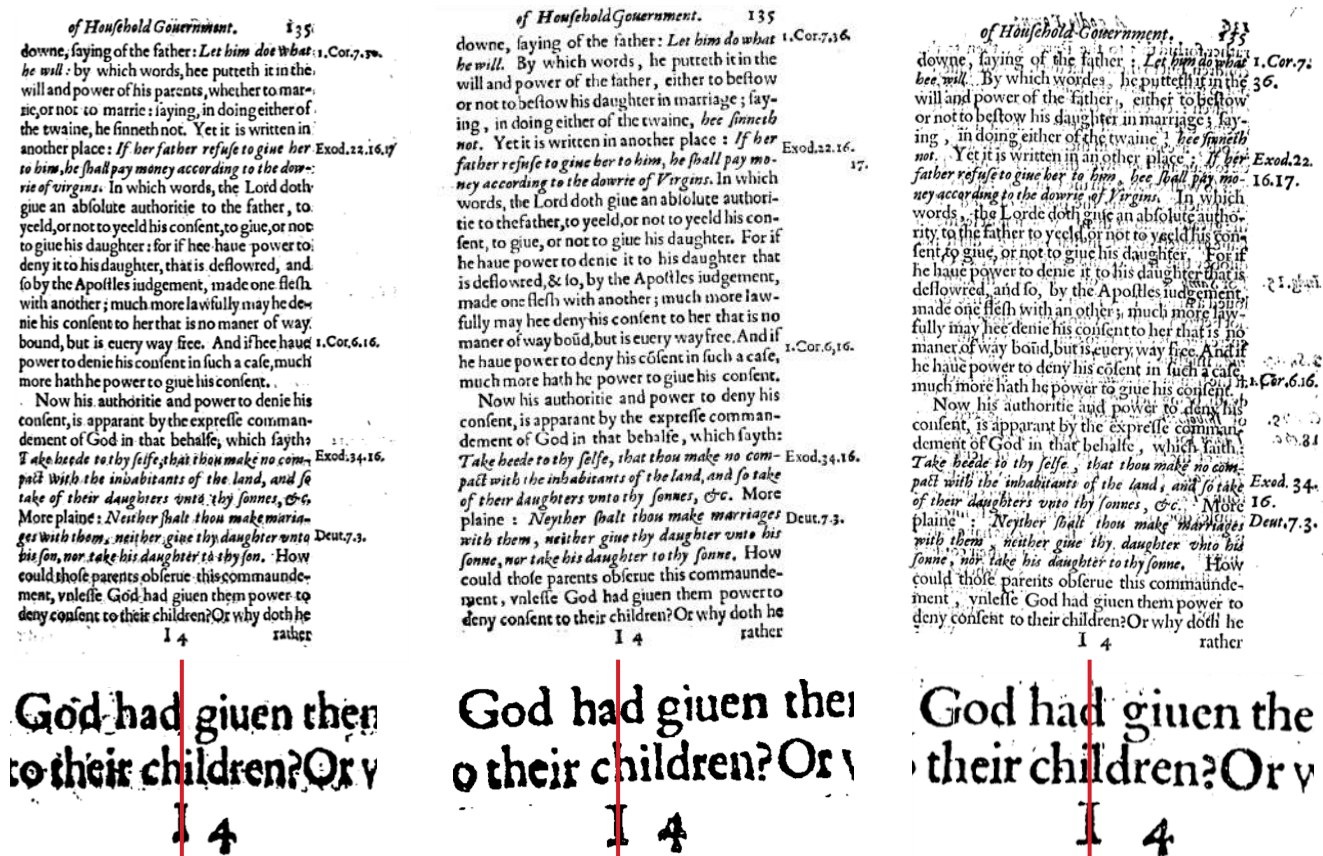 of Houſehold Gouernment. 135
downe, ſaying of the father: Let him doe what 1.Cor.7.36.
he will: by which words, hee putteth it in the
will and power of his parents, whether to mar-
rie, or not to marrie: ſaying, in doing either of
the twaine, he ſinneth not. Yet it is written in
another place: If her father refuſe to giue her Exod.22.16.17
to him, he ſhall pay money according to the dow-
rie of virgins. In which words, the Lord doth
giue an abſolute authoritie to the father, to
yeeld, or not to yeeld his conſent, to giue, or not
to giue his daughter: for if hee haue power to
deny it to his daughter, that is deflowred, and
ſo by the Apoſtles iudgement, made one fleſh
with another; much more lawfully may he de-
nie his conſent to her that is no maner of way
bound, but is euery way free. And if hee haue 1.Cor.6.16.
power to denie his conſent in ſuch a caſe, much
more hath he power to giue his conſent.
Now his authoritie and power to denie his
conſent, is apparant by the expreſſe comman-
dement of God in that behalfe, which ſayth:
Take heede to thy ſelfe, that thou make no com- Exod.34.16.
pact with the inhabitants of the land, and ſo
take of their daughters vnto thy ſonnes, &c.
More plaine: Neither ſhalt thou make maria-
ges with them, neither giue thy daughter vnto Deut.7.3.
his ſon, nor take his daughter to thy ſon. How
could thoſe parents obſerue this commaunde-
ment, vnleſſe God had giuen them power to
deny conſent to their children? Or why doth he
I 4 rather
of Houſehold Gouernment. 135
downe, ſaying of the father: Let him do what 1.Cor.7.36.
he will. By which words, he putteth it in the
will and power of the father, either to beſtow
or not to beſtow his daughter in marriage; ſay-
ing, in doing either of the twaine, hee ſinneth
not. Yet it is written in another place: If her Exod.22.16.
father refuſe to giue her to him, he ſhall pay mo- 17.
ney according to the dowrie of Virgins. In which
words, the Lord doth giue an abſolute authori-
tie to the father, to yeeld, or not to yeeld his con-
ſent, to giue, or not to giue his daughter. For if
he haue power to denie it to his daughter that
is deflowred, & ſo, by the Apoſtles iudgement,
made one fleſh with another; much more law-
fully may hee deny his conſent to her that is no
maner of way boūd, but is euery way free. And if
he haue power to deny his cōſent in ſuch a caſe, 1.Cor.6,16.
much more hath he power to giue his conſent.
Now his authoritie and power to deny his
conſent, is apparant by the expreſſe comman-
dement of God in that behalfe, which ſayth:
Take heede to thy ſelfe, that thou make no com- Exod.34.16.
pact with the inhabitants of the land, and ſo take
of their daughters vnto thy ſonnes, &c. More
plaine: Neyther ſhalt thou make marriages Deut.7.3.
with them, neither giue thy daughter vnto his
ſonne, nor take his daughter to thy ſonne. How
could thoſe parents obſerue this commaunde-
ment, vnleſſe God had giuen them power to
deny conſent to their children? Or why doth he
I 4 rather
of Houſehold Gouernment.
downe, ſaying of the father: Let him do what 1.Cor.7.
hee will. By which wordes, he putteth it in the 36.
will and power of the father, either to beſtow
or not to beſtow his daughter in marriage; ſay-
ing, in doing either of the twaine, hee ſinneth
not. Yet it is written in an other place: If her Exod.22.
father refuſe to giue her to him, hee ſhall pay mo- 16.17.
ney according to the dowrie of Virgins. In which
words, the Lorde doth giue an abſolute autho-
rity to the father to yeeld, or not to yeeld his con-
ſent, to giue, or not to giue his daughter. For if
he haue power to denie it to his daughter that is
deflowred, and ſo, by the Apoſtles iudgement,
made one fleſh with an other; much more law-
fully may hee denie his conſent to her that is no
maner of way boūd, but is euery way free. And if
he haue power to deny his cōſent in ſuch a caſe,
much more hath he power to giue his conſent. 1.Cor.6.16.
Now his authoritie and power to deny his
conſent, is apparant by the expreſſe comman-
dement of God in that behalfe, which ſaith:
Take heede to thy ſelfe, that thou make no com-
pact with the inhabitants of the land, and ſo take Exod. 34.
of their daughters vnto thy ſonnes, &c. More 16.
plaine: Neyther ſhalt thou make marriages Deut.7.3.
with them, neither giue thy daughter vnto his
ſonne, nor take his daughter to thy ſonne. How
could thoſe parents obſerue this commaunde-
ment, vnleſſe God had giuen them power to
deny conſent to their children? Or why doth he
I 4 rather
God had giuen then
to their children? Or w
I 4
God had giuen ther
o their children? Or v
I 4
God had giuen the
their children? Or w
I 4